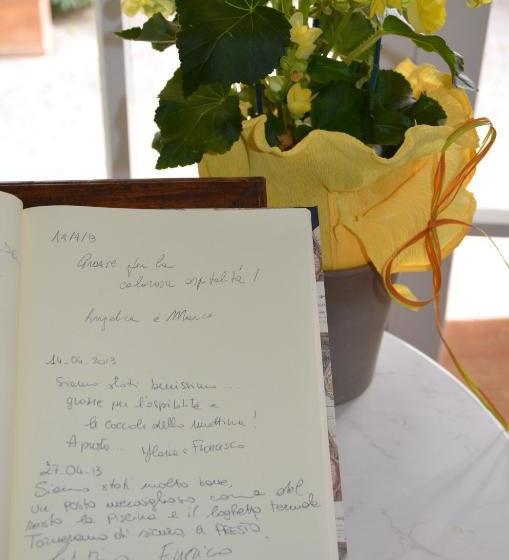 14/4/13
Grazie per la
calorosa ospitalità!
Angelica e Marco
14.04.2013
Siamo stati benissimo...
grazie per l'ospitalità e
le coccole della mattina!
A presto... Ylenia e Francesco
27.04.13
Siamo stati molto bene,
un posto meraviglioso come del
resto la piscina e il laghetto termale
Torneremo di sicuro, a PRESTO.
Enrico